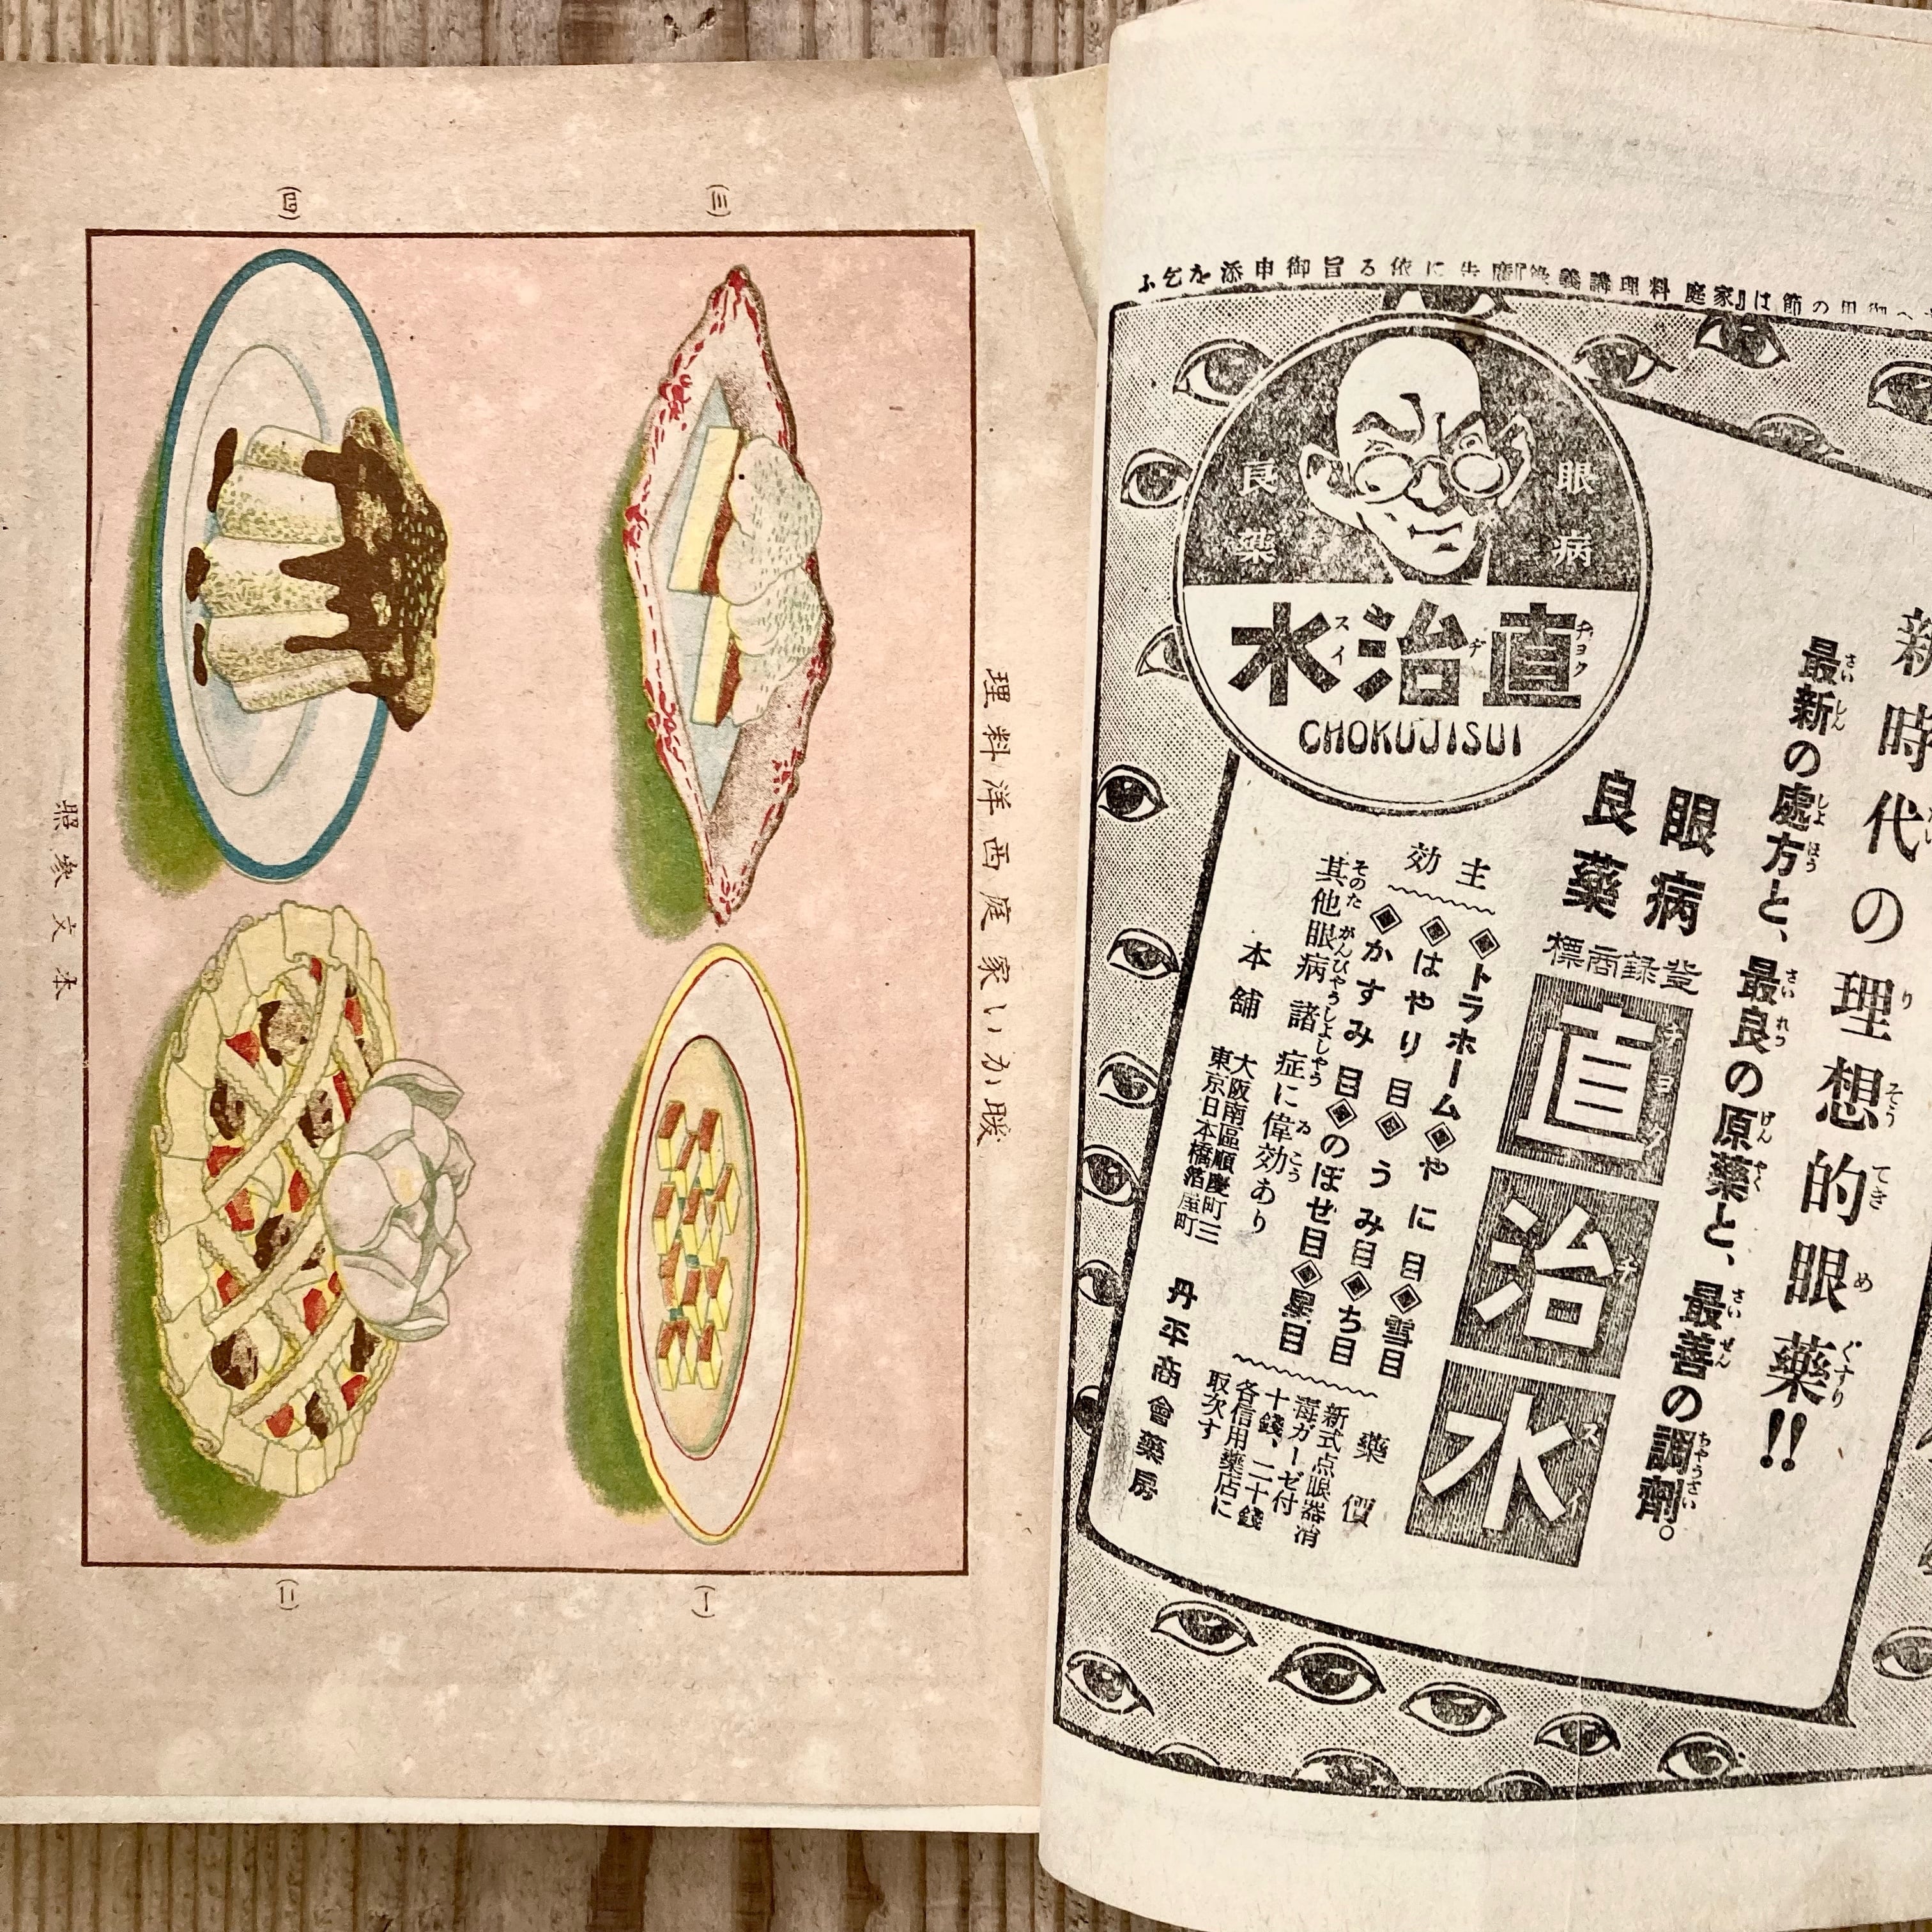 理料洋西庭家いか暖
(一)
(二)
(三)
(四)
照参文本
はの節は『家庭料理講義録』廣告に依る旨御申添を乞ふ
眼病
良薬
直治水
チョクヂスイ
CHOKUJISUI
新時代の理想的眼薬!!
最新の處方と、最良の原薬と、最善の調劑。
眼病
良薬
標商録登
直治水
チヨクヂスイ
主効
◈トラホーム◈やに目◈雪目
◈はやり目◈うみ目◈ち目
◈かすみ目◈のぼせ目◈星目
其他眼病諸症に偉効あり
薬價
新式点眼器消
毒ガーゼ付
十錢、二十錢
各信用薬店に
取次す
本舗
大阪南區順慶町三
東京日本橋箔屋町
丹平商會薬房